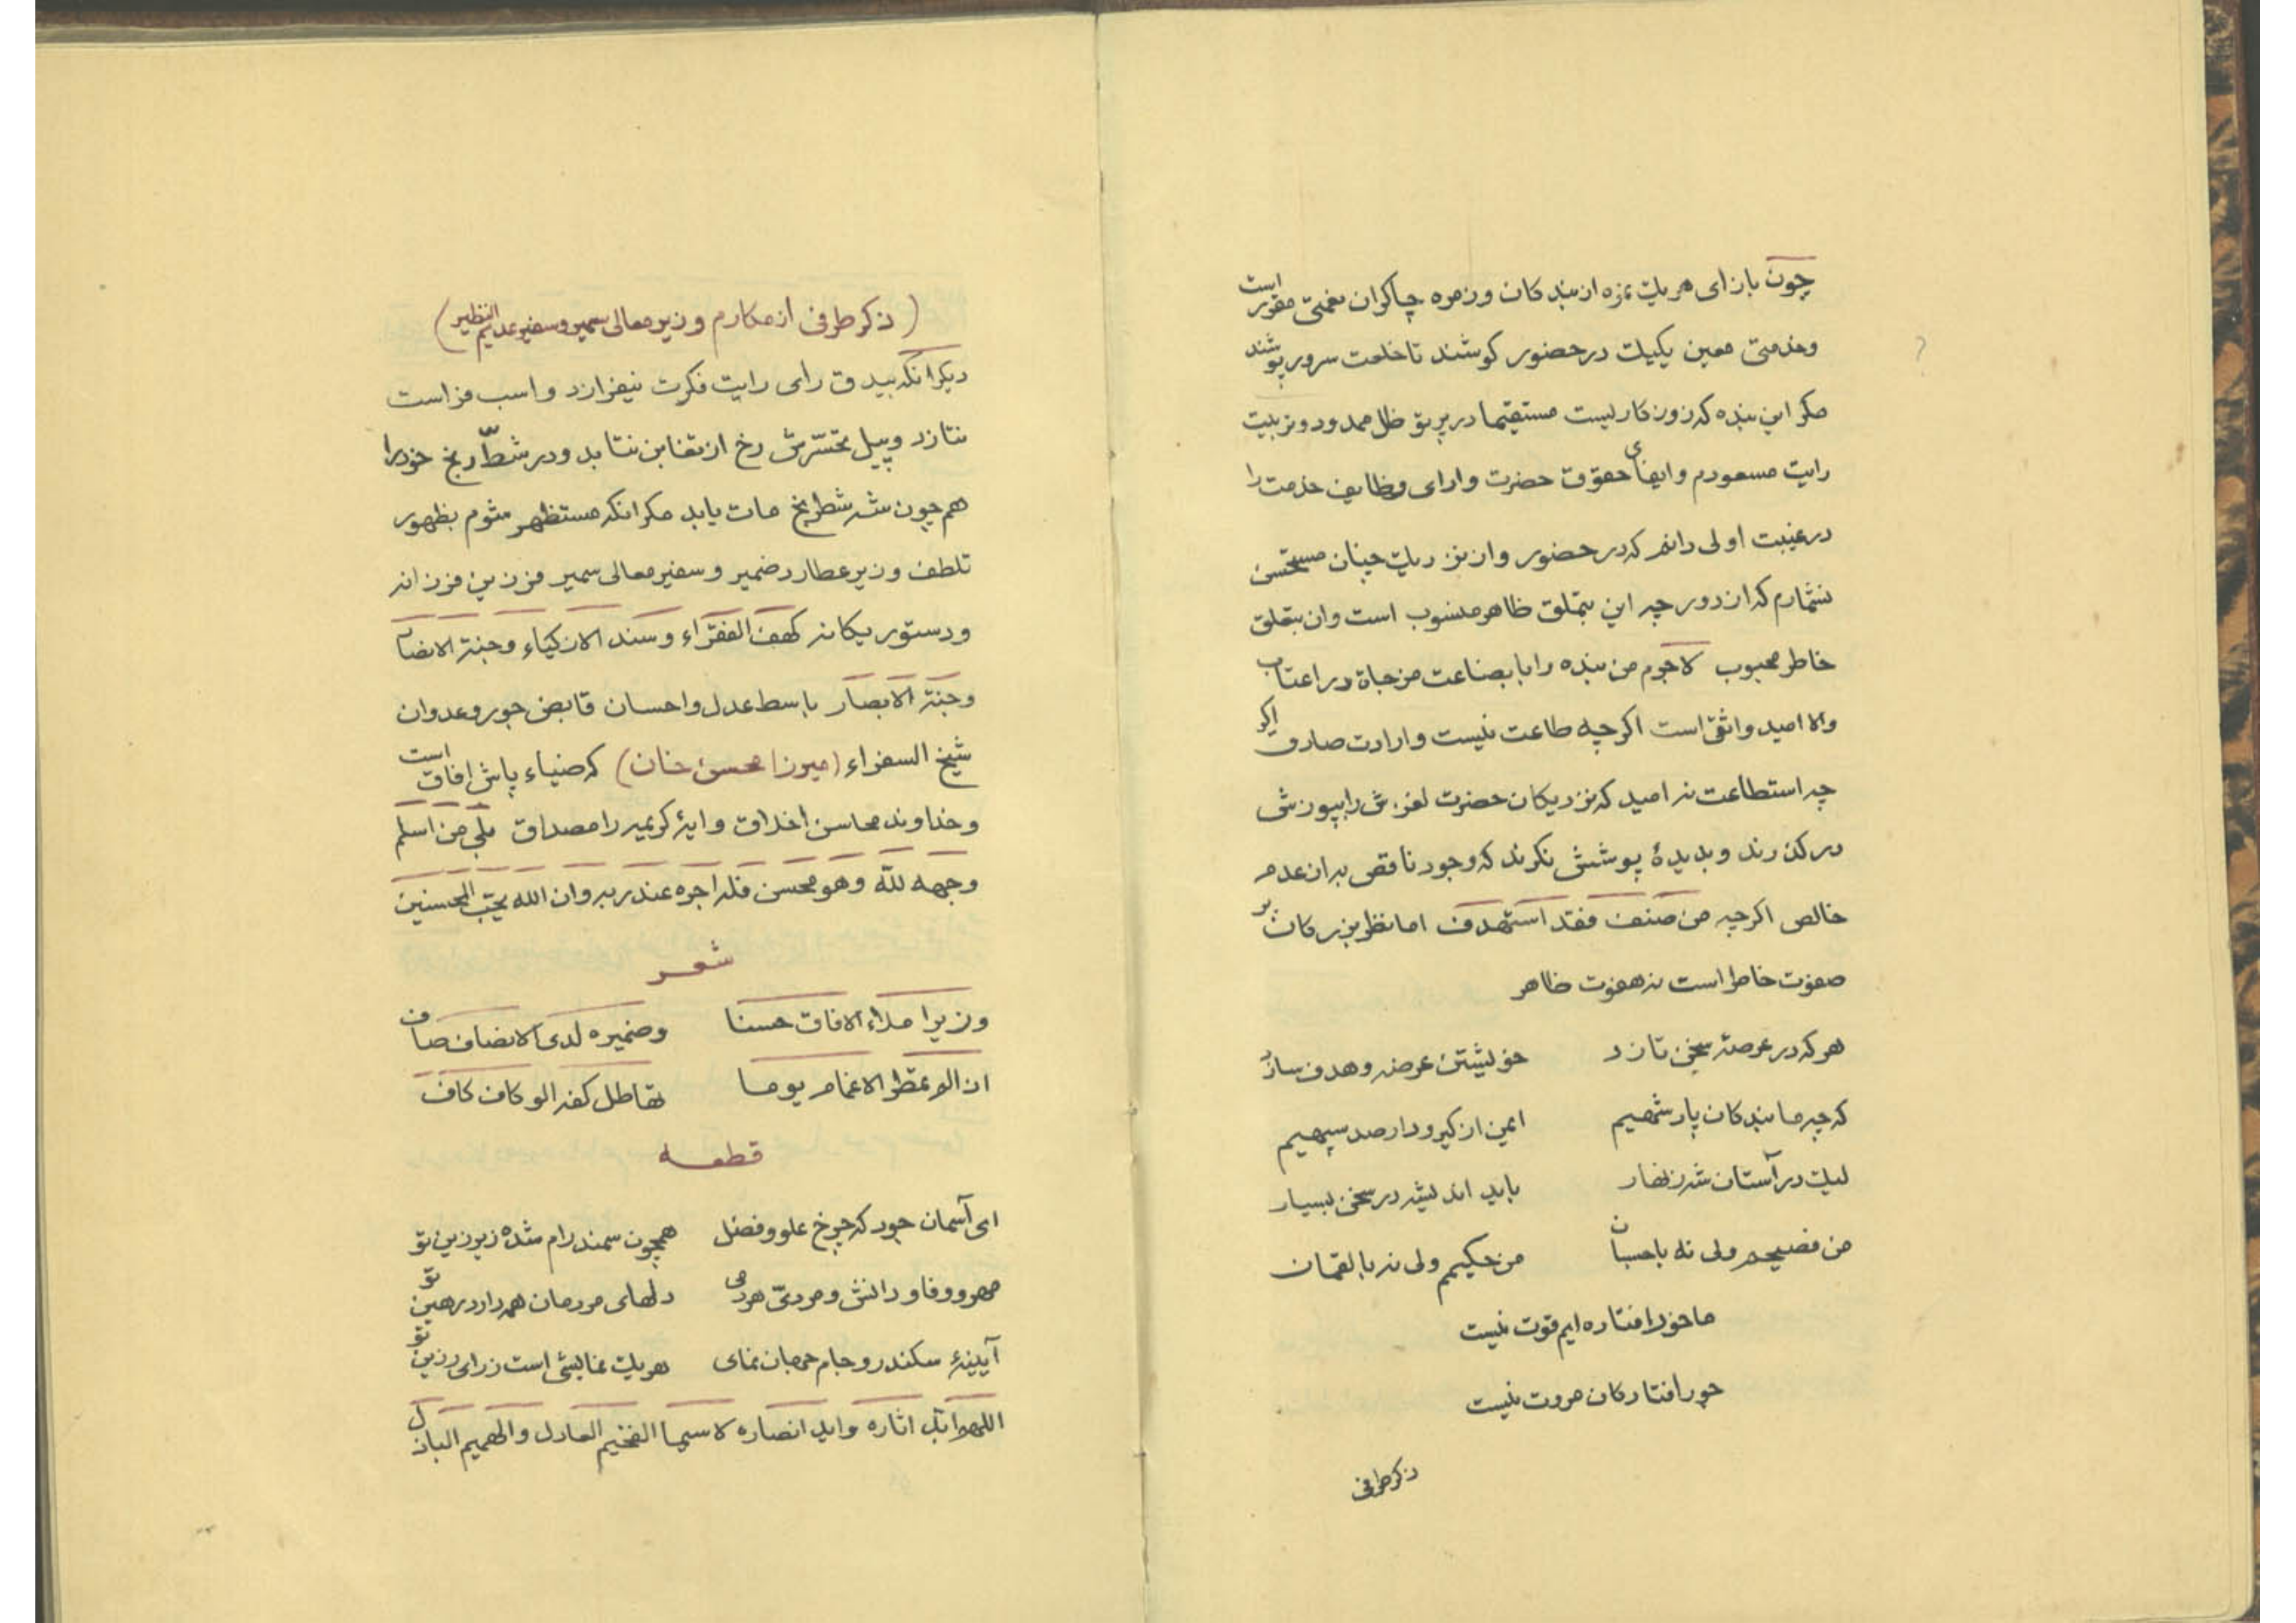 چون بازای هریك بمزه از بندکان وزمره چاکران نعمتی مقرر است
وخدمتی معین یکیك در حضور کوشند تا خلعت سرور پوشند
مکر این بنده که زوزکاریست مستقیما در پرتو ظل ممدود وتربیت
رایت مسعودم وایفای حقوق حضرت وادای وظایف خدمت را
در غیبت اولی دانم که در حضور وان نزدیك چنان مستحسن
نشمارم که از دور چه این بتملق ظاهر منسوب است وان بتعلق
خاطر محبوب لاجرم من بنده را با بضاعت مزجاة در اعتاب
والا امید واثق است اکرچه طاعت نیست وارادت صادق اکر
چه استطاعت نه امید که نزدیکان حضرت لغزش را بپوزش
درکذرند وبدیدۀ پوشش نکرند که وجود ناقص به از عدم
خالص اکرچه من صنف فقد استهدف اما نظر بزرکان بر
صفوت خاطر است نه هفوت ظاهر
هر که در عرصۀ سخن تازد خویشتن عرضه وهدف سازد
که چه ما بندکان پادشهیم ایمن از کیرودار صد سپهیم
لیك در آستان شه زنهار باید اندیشه در سخن بسیار
من فصیحم ولی نه باحسبان من حکیمم ولی نه بالقمان
ما خود افتاده ایم قوت نیست
جور افتادکان مروت نیست
ذکر طرفی
(ذکر طرفی از مکارم وزیر معالی سمیر وسفیر عدیم النظیر)
دیکر انکه بیدق رای رایت فکرت نیفرازد واسب فراست
نتازد وپیل تحسّرش رخ از تغابن نتابد ودر شطّ رنج خود را
هم چون شه شطرنج مات یابد مکر انکه مستظهر شوم بظهور
تلطف وزیر عطارد ضمیر وسفیر معالی سمیر فرزین فرزانه
ودستور یکانه کهف الفقراء وسند الازکیاء وجنة الانصار
وجنة الابصار باسط عدل واحسان قابض جور وعدوان
شیخ السفراء (میرزا محسن خان) که ضیاء پاش افاق است
وخداوند محاسن اخلاق وایۀ کریمه را مصداق بلی من اسلم
وجهه لله وهو محسن فله اجره عند ربه وان الله یحب المحسنین
شعر
وزیرا ملاء الافاق حسنا وضمیره لدی الانصاف صاف
ان الم تمطر الاغمام یوما تقاطل کفه الوکاف کاف
قطعه
ای آسمان جود که چرخ علو وفضل همچون سمند رام شده زیر زین تو
مهر ووفا ودانش ومردیّ هردمی دلهای مردمان همه دارد رهین تو
آیینۀ سکندر وجام جهان نمای هریك نمایشی است ز رای رزین تو
اللهم ابّد اثاره واید انصاره لاسیما الفخیم العادل والهمیم الباذل